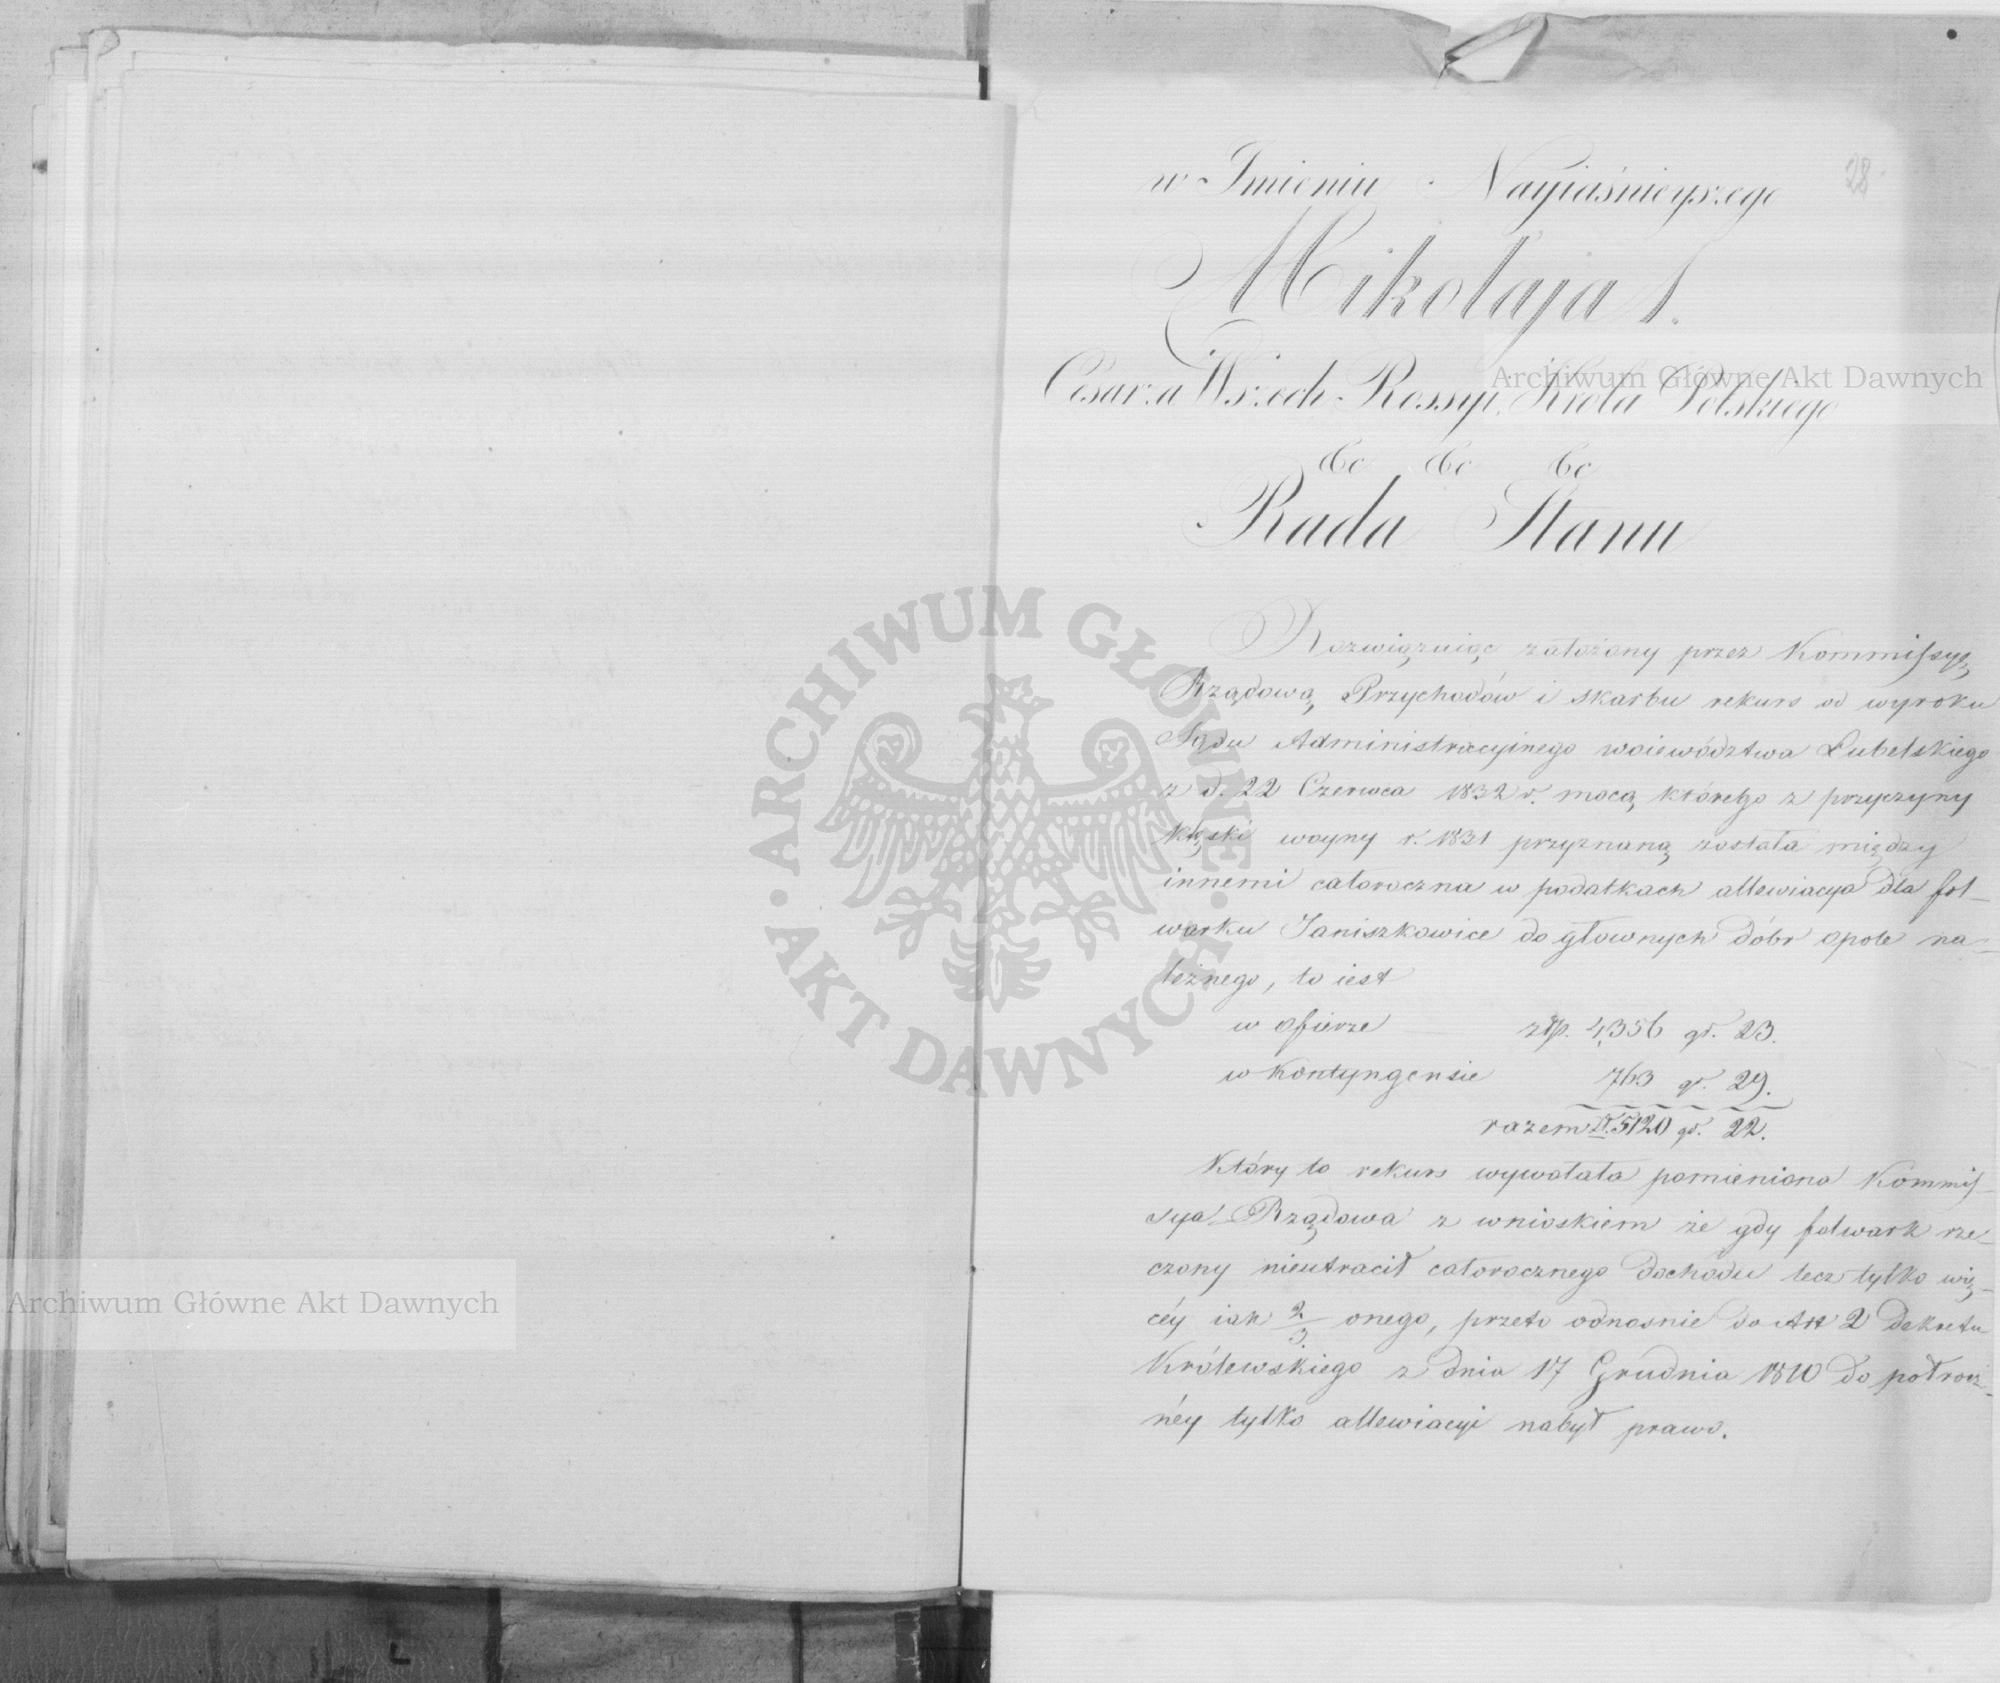 28
w Imieniu Nayiaśnieyszego
Mikołaja I.
Cesarza Wszech Rossyi, Króla Polskiego
&c &c &c
Rada Stanu
Rozwiązuiąc założony przez Kommissyą
Rządową Przychodów i Skarbu rekurs od wyroku
Sądu Administracyinego woiewództwa Lubelskiego
z d. 22 Czerwca 1832 r. mocą którego z przyczyny
klęski woyny r. 1831 przyznaną została między
innemi całoroczna w podatkach allewiacya dla fol-
warku Janiszkowice do głownych dóbr Opole na-
leżnego, to iest
w ofierze złp. 4,356 gr. 23.
w kontyngensie 763 gr. 29.
razem zł. 5120 gr. 22.
Który to rekurs wywołała pomieniona Kommis-
sya Rządowa z wnioskiem że gdy folwark rze-
czony nieutracił całorocznego dochodu lecz tylko wię-
céy iak 2/3 onego, przeto odnosnie do Art 2 Dekretu
Królewskiego z dnia 17 Grudnia 1810 do połrocz-
néy tylko allewiacyi nabył prawo.
Archiwum Główne Akt Dawnych
Archiwum Główne Akt Dawnych
ARCHIWUM GŁÓWNE • AKT DAWNYCH •